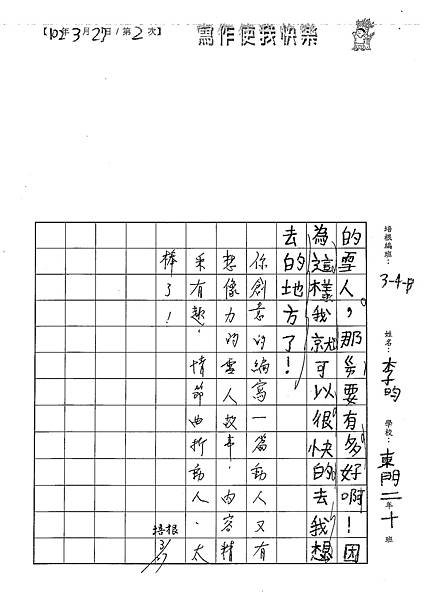 【102年3月27日/第2次】
寫作使我快樂
培根編班：3-4-B
姓名：李昀
學校：東門二年十班
的雪人，那ㄍㄞ要有多好啊！因
為這樣我就可以很快的去我想
去的地方了！
你創意的編寫一篇動人又有
想像力的雪人故事，內容精
采有趣，情節曲折動人，太
棒了！
培根
3/27